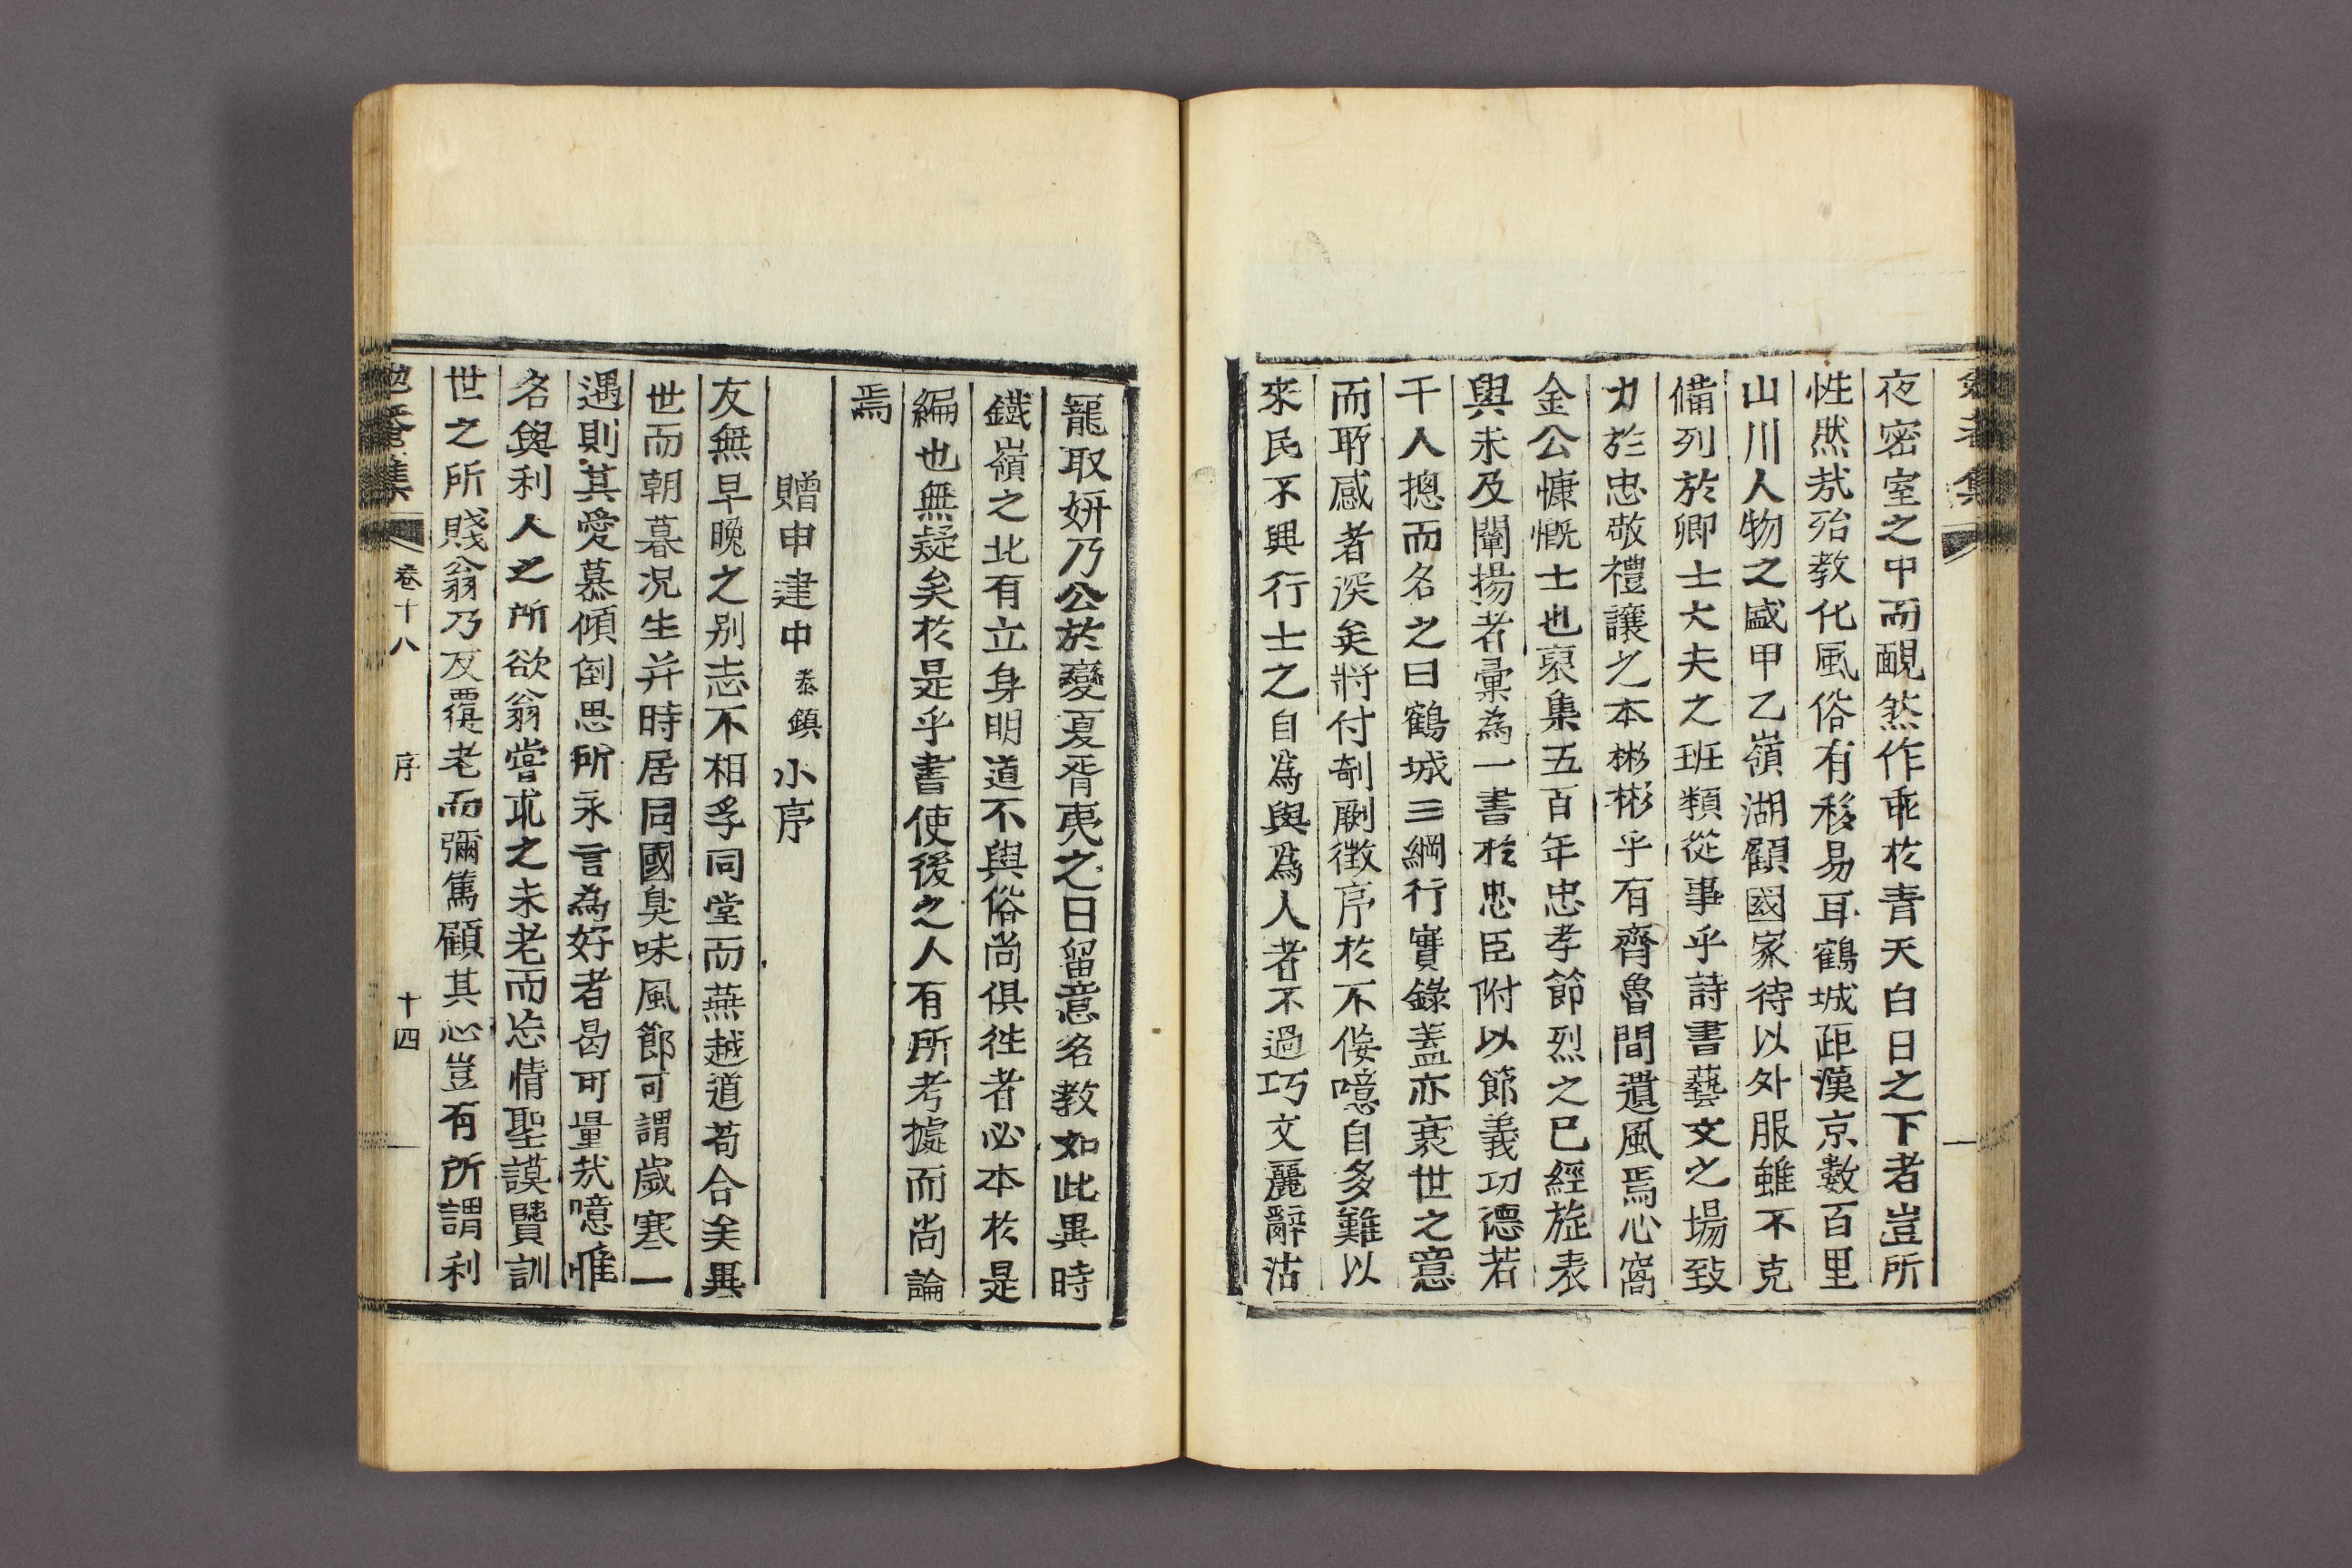 夜密室之中而靦然作乖於青天白日之下者豈所
性然㢤殆教化風俗有移易耳鶴城距漢京數百里
山川人物之盛甲乙嶺湖顧國家待以外服雖不克
備列於卿士大夫之班類從事乎詩書藝文之場致
力於忠敬禮讓之本彬彬乎有齊魯間遺風焉心窩
金公慷慨士也裒集五百年忠孝節烈之已經旌表
與未及闡揚者彙為一書於忠臣附以節義功德若
干人摠而名之曰鶴城三綱行實錄盖亦衰世之意
而所感者深矣將付剞劂徵序於不佞噫自多難以
來民不興行士之自爲與爲人者不過巧文麗辭沽
寵取妍乃公於變夏胥夷之日留意名教如此異時
鐵嶺之北有立身明道不與俗尚俱往者必本於是
編也無疑矣於是乎書使後之人有所考據而尚論
焉
贈申建中 泰鎮 小序
友無早晚之别志不相孚同堂而燕越道苟合矣異
世而朝暮况生并時居同國臭味風節可謂歲寒一
遇則其愛慕傾倒思所永言為好者曷可量㢤噫惟
名與利人之所欲翁嘗求之未老而忘情聖謨賢訓
世之所賤翁乃反覆老而彌篤顧其心豈有所謂利
勉菴集 卷十八 序 十四